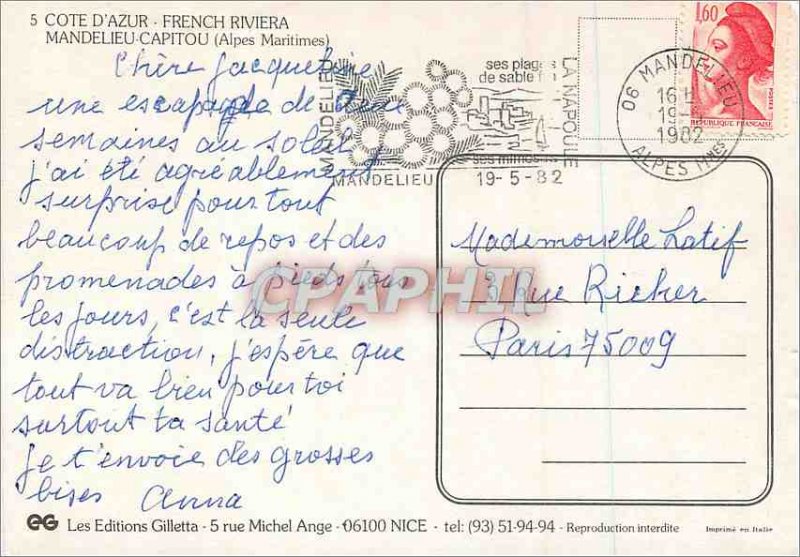 5 COTE D'AZUR - FRENCH RIVIERA
MANDELIEU-CAPITOU (Alpes Maritimes)
Chère Jacqueline
une escapade de deux
semaines au soleil
j'ai été agréablement
surprise pour tout
beaucoup de repos et des
promenades à pieds tous
les jours, c'est la seule
distraction, j'espère que
tout va bien pour toi
surtout ta santé
je t'envoie des grosses
bises Anna
MANDELIEU
MANDELIEU
ses plages
de sable fin
ses mimosas
LA NAPOULE
19-5-82
06 MANDELIEU
16H
19-5
1982
ALPES MMES
1,60
POSTES
REPUBLIQUE FRANCAISE
Mademoiselle Latif
3 Rue Richer
Paris 75009
CPAPHIL
EG Les Editions Gilletta - 5 rue Michel Ange - 06100 NICE - tel: (93) 51-94-94 - Reproduction interdite
Imprimé en Italie